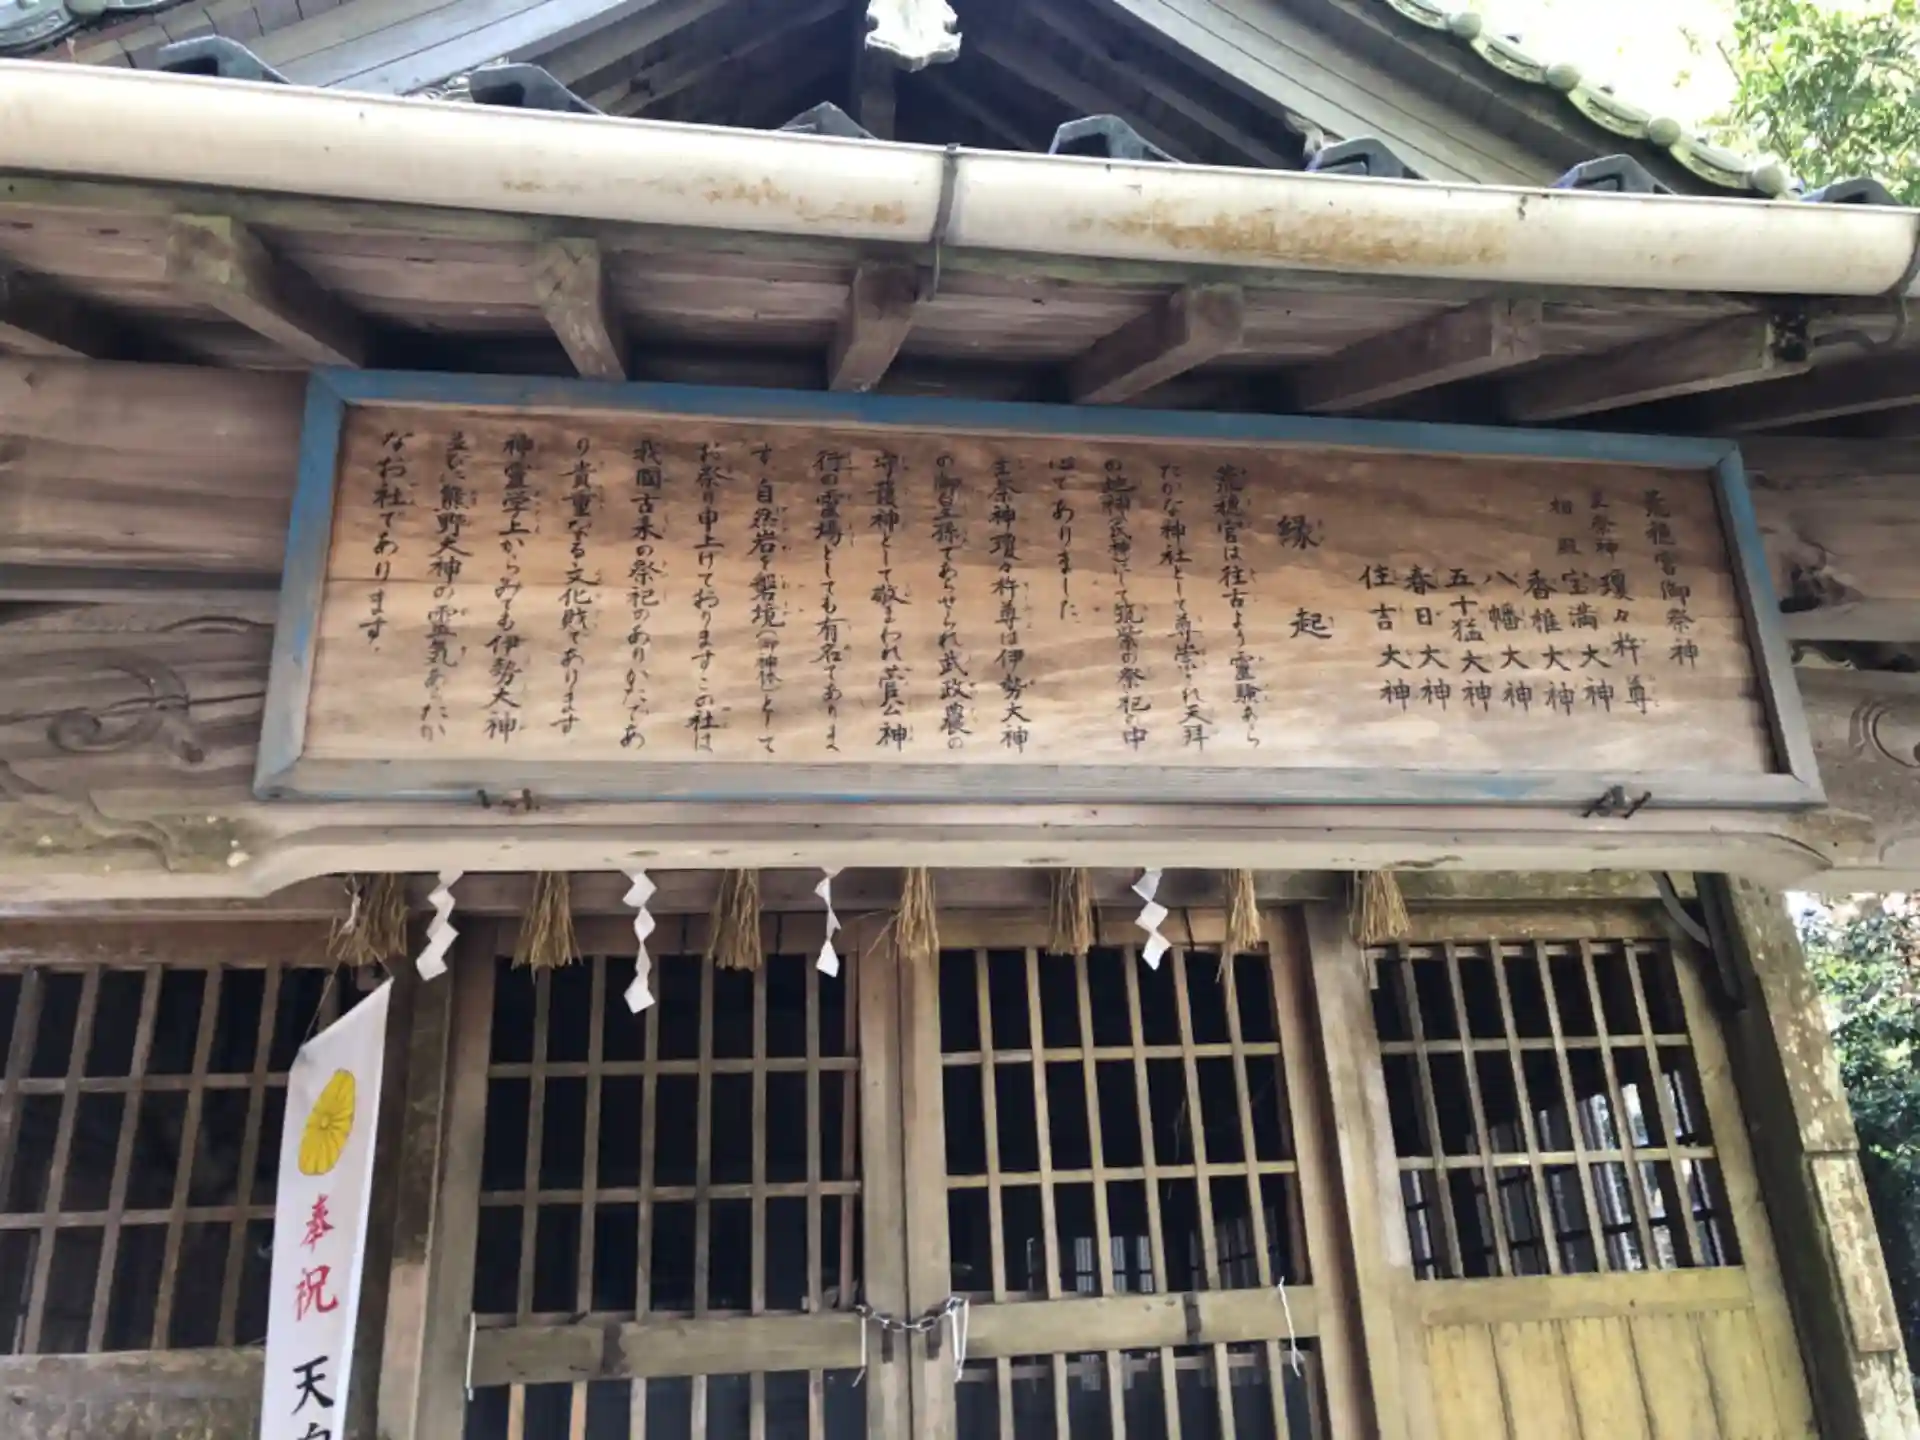 荒穂宮御祭神
主祭神 瓊々杵尊
相殿 宝満大神
香椎大神
八幡大神
五十猛大神
春日大神
住吉大神
縁起
荒穂宮は往古より霊験あら
たかな神社として尊崇され天拝
の地神(氏神)として筑紫の祭祀の中
心でありました
主祭神瓊々杵尊は伊勢大神
の御皇孫であらせられ武政農の
守護神として敬まわれ菅公神
行の霊場としても有名でありま
す、自然岩を磐境(御神体)として
お祭り申上げておりますこの社は
我國古来の祭祀のありかたであ
り貴重なる文化財であります
神霊学上からみても伊勢大神
並びに熊野大神の霊気あらたか
なお社であります。
奉祝 天